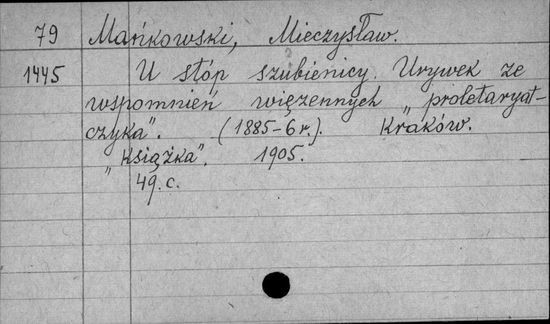 79 Mańkowski, Mieczysław.
1445 U stóp szubienicy. Urywek ze
wspomnień więzennych „proletaryat-
czyka". (1885-6 r.). Kraków.
„Książka". 1905.
49. c.